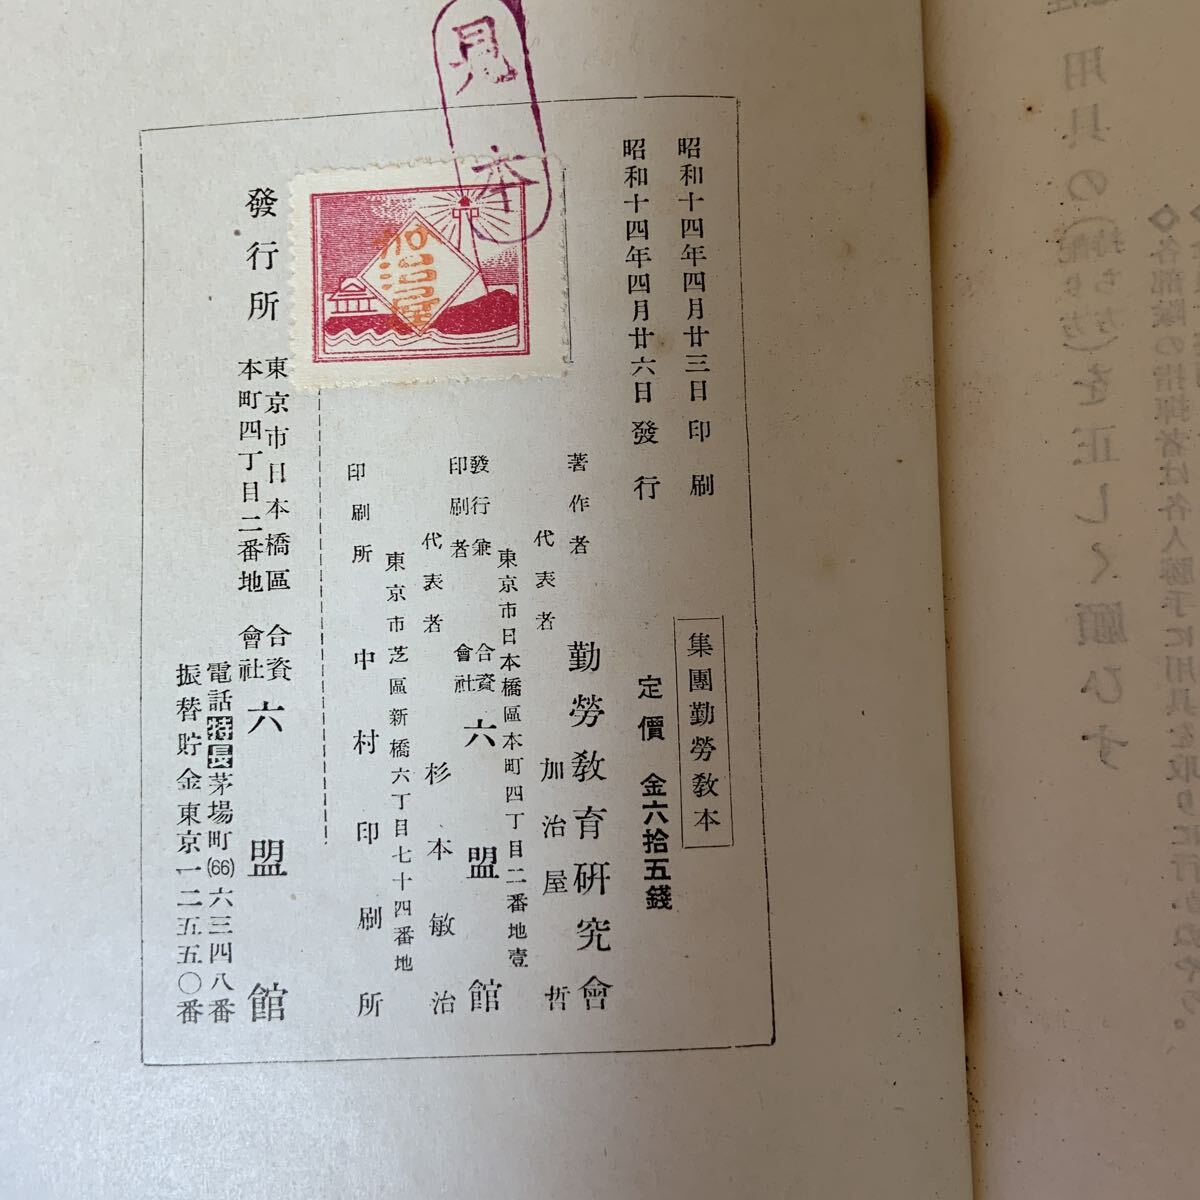 見本
昭和十四年四月廿三日印刷
昭和十四年四月廿六日發行
集團勤勞敎本
定價 金六拾五錢
著作者 勤勞敎育硏究會
代表者 加治屋哲
東京市日本橋區本町四丁目二番地壹
發行兼印刷者 合資會社 六盟館
代表者 杉本敏治
東京市芝區新橋六丁目七十四番地
印刷所 中村印刷所
加治屋
發行所 東京市日本橋區本町四丁目二番地 合資會社 六盟館
電話特長茅場町(66)六三四八番
振替貯金東京一二五五〇番
用具の(持ち方)(配り方)を正しく願ひます
◇各部隊の指揮者は各人勝手に用具を取りに行かぬやう。